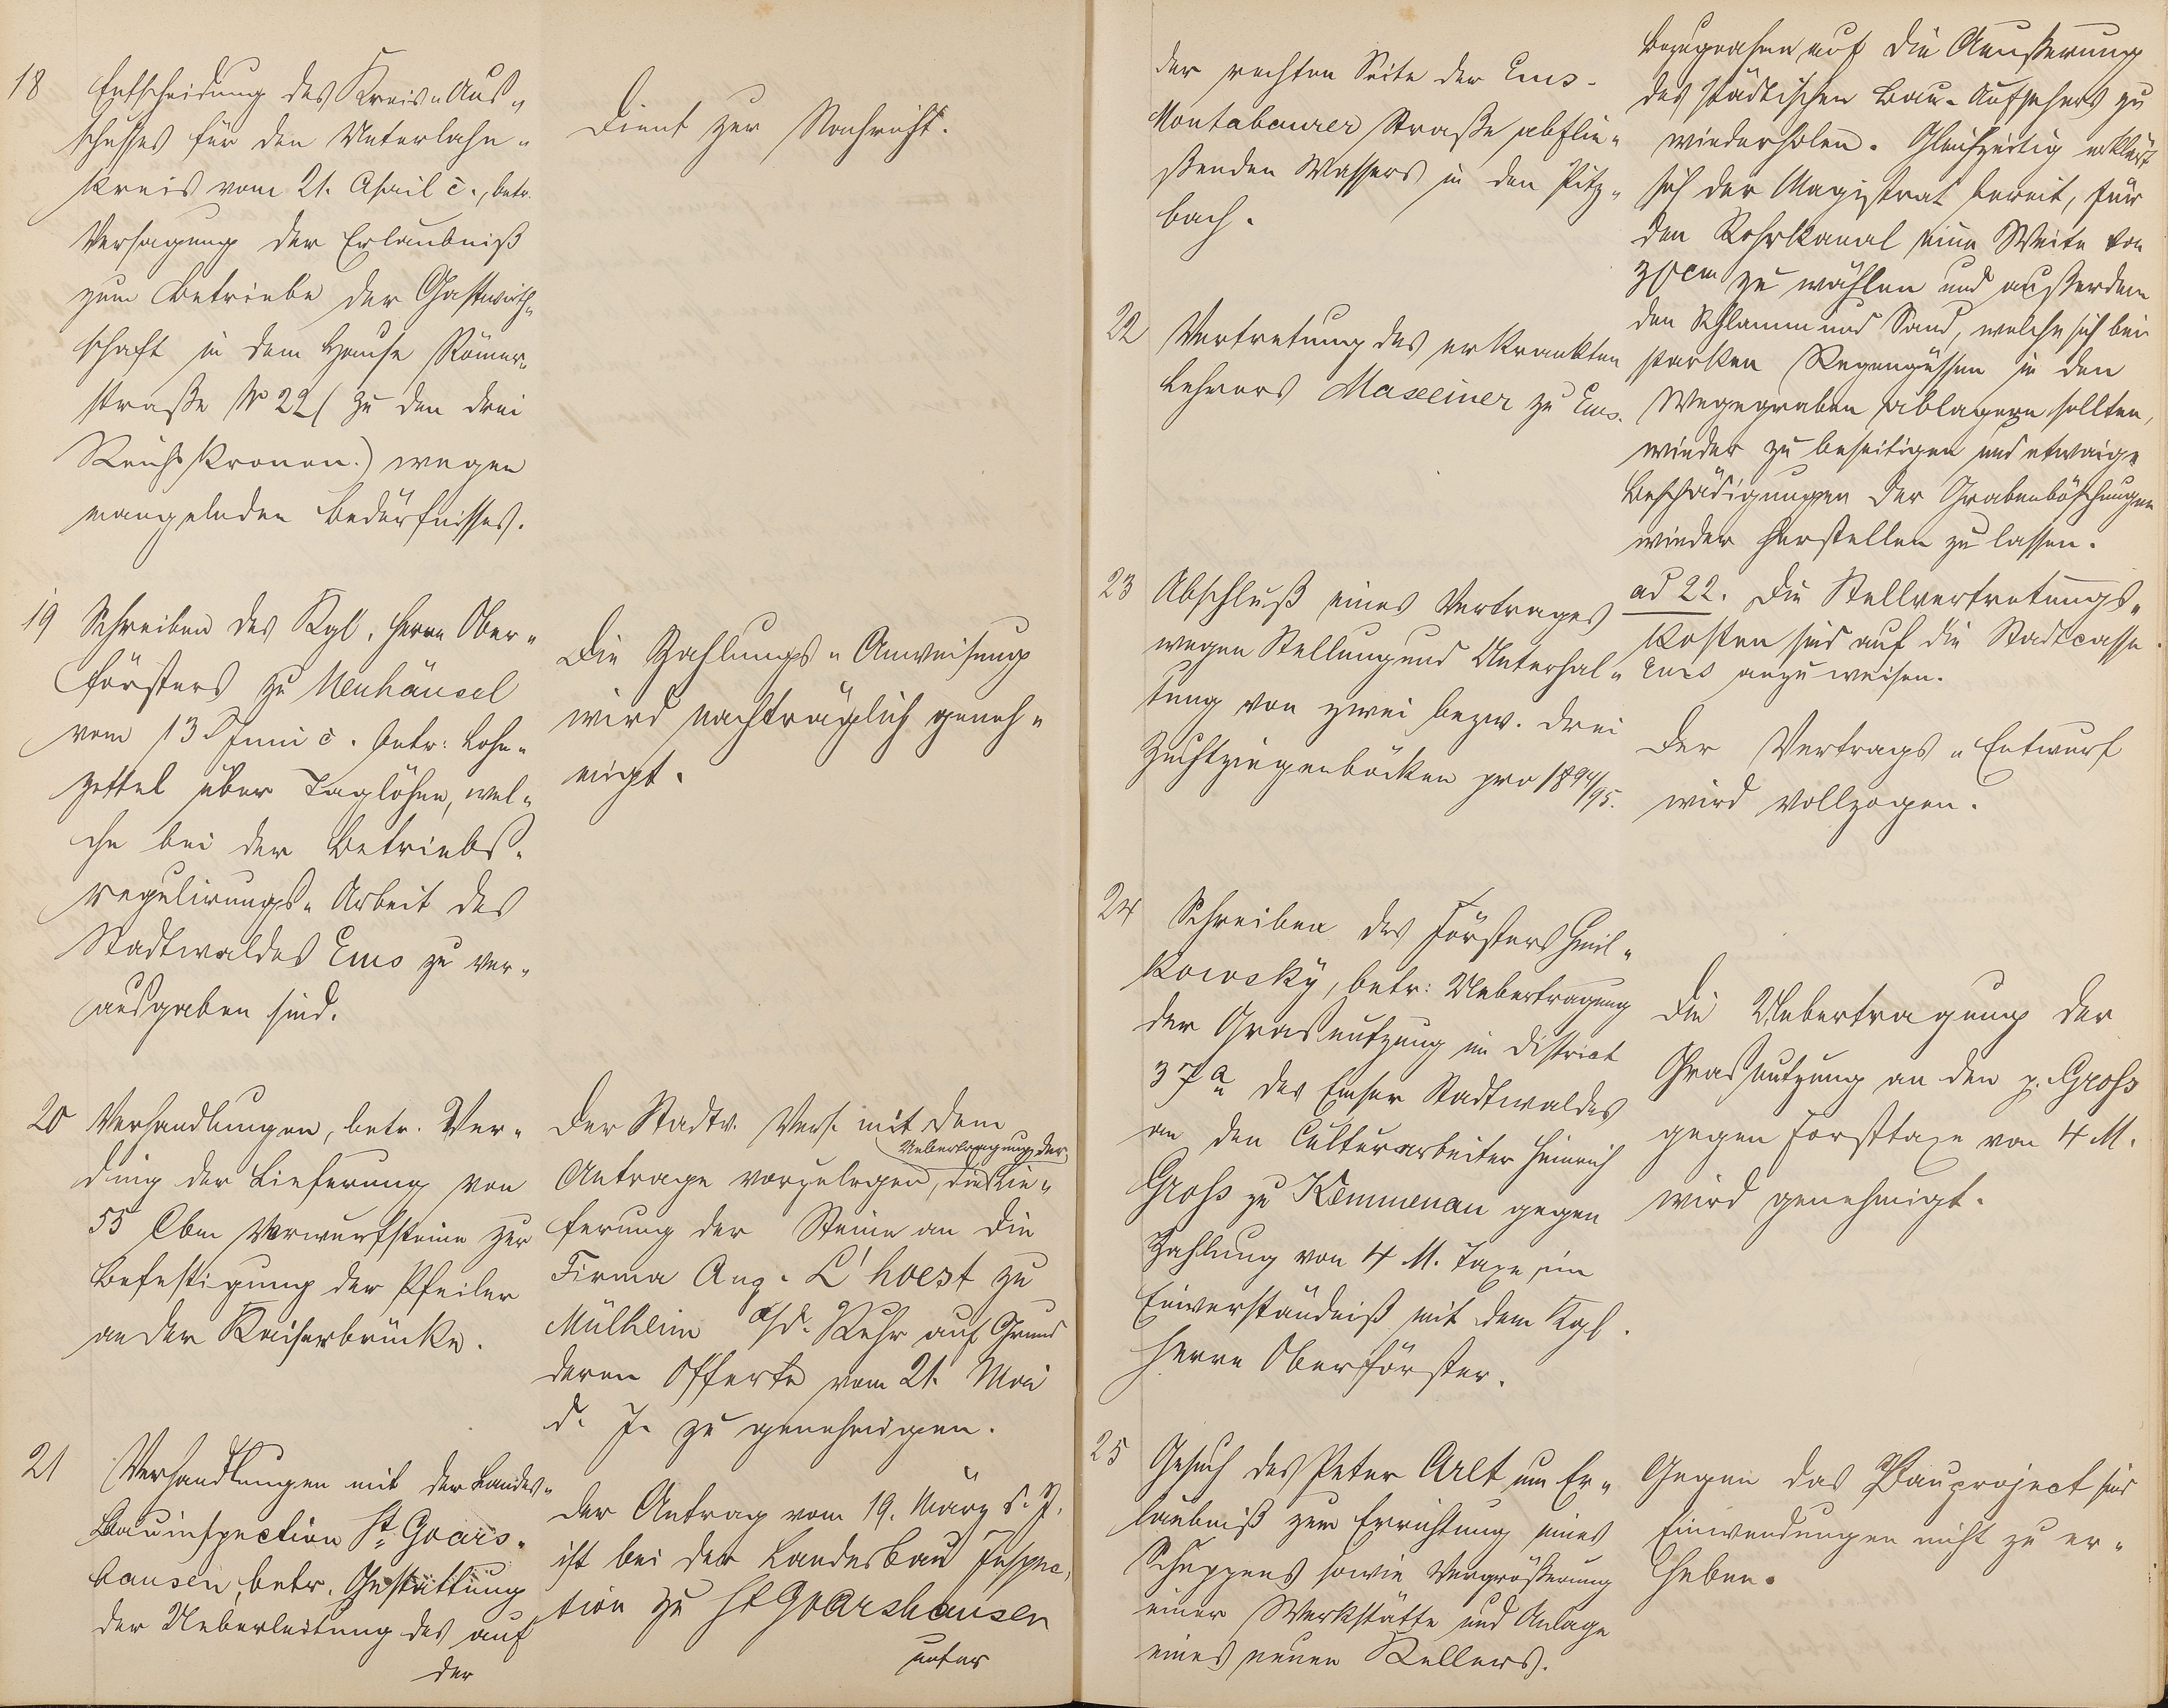 18 Entscheidung des Kreis-Aus-
schusses für den Unterlahn-
kreis vom 21. April c., betr.
Versagung der Erlaubniß
zum Betriebe der Gastwirth-
schaft in dem Hause Römer-
straße No 22 (zu den drei
Reichskronen.) wegen
mangelnden Bedürfnisses.
Dient zur Nachricht.
19 Schreiben des Kgl. Herrn Ober-
försters zu Neuhäusel
vom 13. Juni c. betr: Lohn-
zettel über Taglöhne, wel-
che bei der Betriebs-
regulirungs-Arbeit des
Stadtwaldes Ems zu ver-
ausgaben sind.
Die Zahlungs-Anweisung
wird nachträglich geneh-
migt.
20 Verhandlungen, betr. Ver-
ding der Lieferung von
55 Cbm Vorwurfsteine zur
Befestigung der Pfeiler
an der Kaiserbrücke.
Der Stadtv. Vers. mit dem
Uebertragung der
Antrage vorzulegen, die Lie-
ferung der Steine an die
Firma Aug. L'hoest zu
Mülheim a/d. Ruhr auf Grund
deren Offerte vom 21. Mai
d. J. zu genehmigen.
21 Verhandlungen mit der Landes-
Bauinspection St. Goars-
hausen, betr. Gestattung
der Ueberleitung des auf
der
Der Antrag vom 19. März d. J.
ist bei der Landesbau Inspec-
tion zu St Goarshausen
unter
der rechten Seite der Ems-
Montabaurer Straße abflie-
ßenden Wassers in den Pitz-
bach.
Bezugnahme auf die Aeußerung
des städtischen Bau-Aufsehers zu
wiederholen. Gleichzeitig erklärt
sich der Magistrat bereit, für
den Rohrkanal eine Weite von
cm zu wählen und außerdem
den Schlamm und Sand, welche sich bei
starken Regengüssen in den
Wegegraben ablagern sollten,
wieder zu beseitigen und etwaige
Beschädigungen der Grabenböschungen
wieder herstellen zu lassen.
22 Vertretung des erkrankten
Lehrers Maxeiner zu Ems.
ad 22. Die Stellvertretungs-
kosten sind auf die Stadtcasse
Ems anzuweisen.
23 Abschluß eines Vertrages
wegen Stellung und Unterhal-
tung von zwei bezw. drei
Zuchtziegenböcken pro 1894/95.
Der Vertrags-Entwurf
wird vollzogen.
24 Schreiben des Försters
kowsky, betr: Uebertragung
der Grasnutzung im District
37a des Emser Stadtwaldes
an den Culturarbeiter Heinrich
Gross zu Kemmenau gegen
Zahlung von 4 M. Taxe, im
Einverständniß mit dem Kgl.
Herrn Oberförster.
Die Uebertragung der
Grasnutzung an den p. Gross
gegen Forsttaxe von 4 M.
wird genehmigt.
25 Gesuch des Peter Arlt um Er-
laubniß zur Errichtung eines
Schuppens sowie Vergrößerung
einer Werkstätte und Anlage
eines neuen Kellers.
Gegen das Bauproject sind
Einwendungen nicht zu er-
heben.